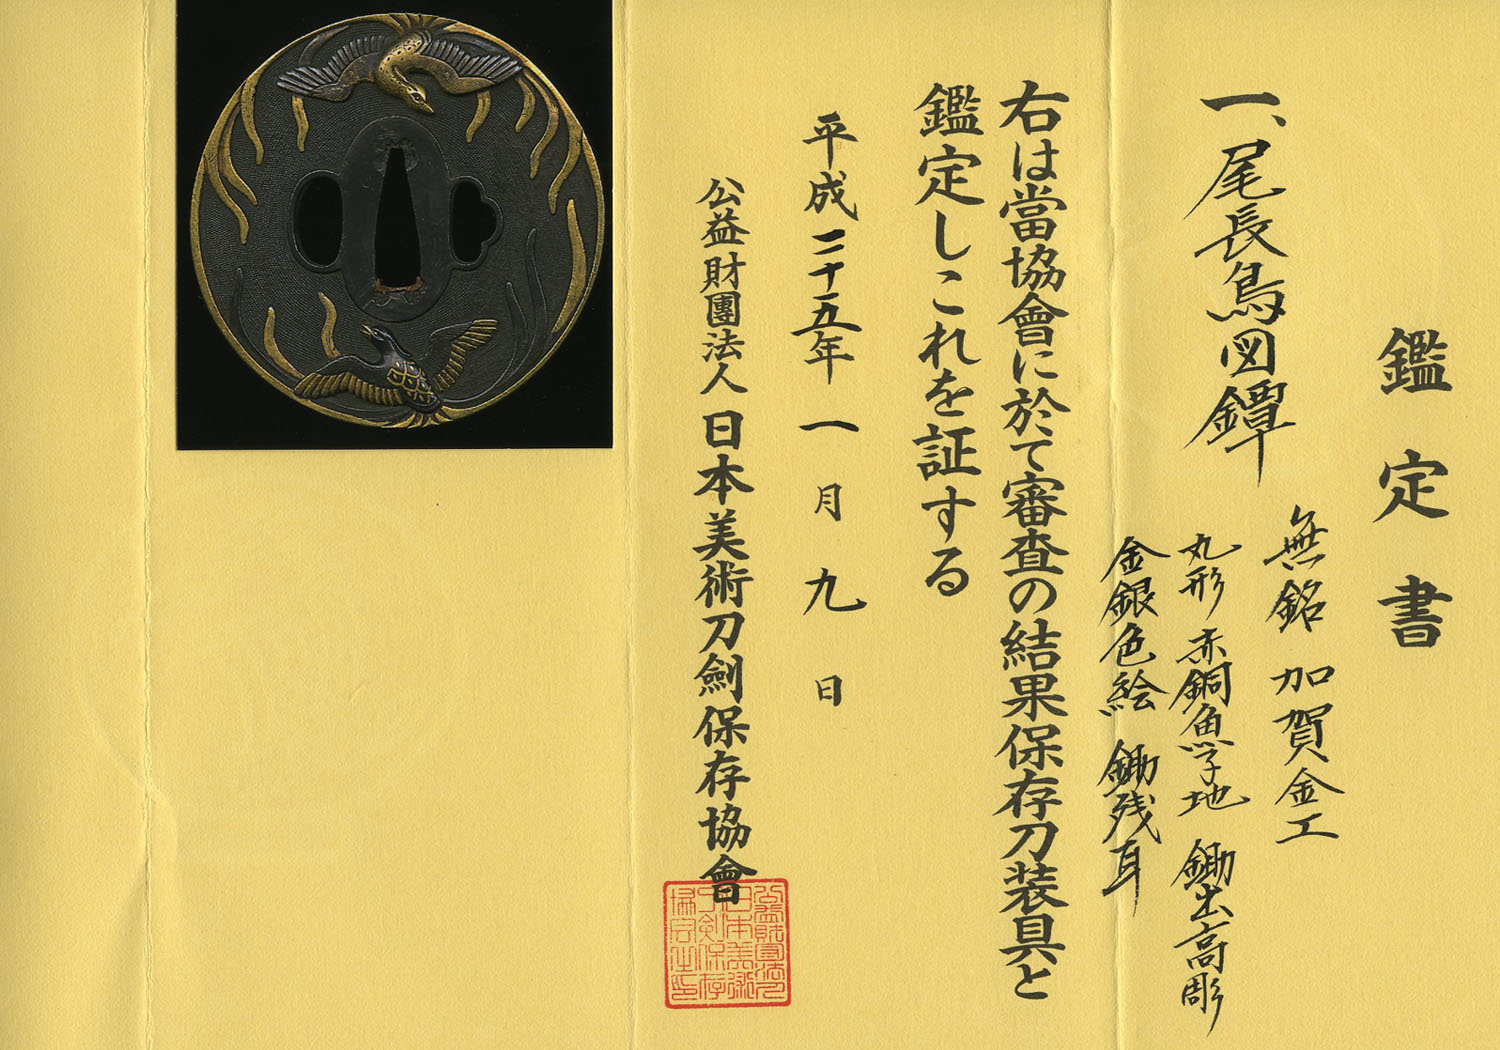 鑑定書
一、尾長鳥図鐔
無銘 加賀金工
丸形 赤銅魚子地 鋤出高彫
金銀色絵 鋤残耳
右は當協會に於て審査の結果保存刀装具と
鑑定しこれを証する
平成二十五年一月九日
公益財團法人日本美術刀劍保存協會